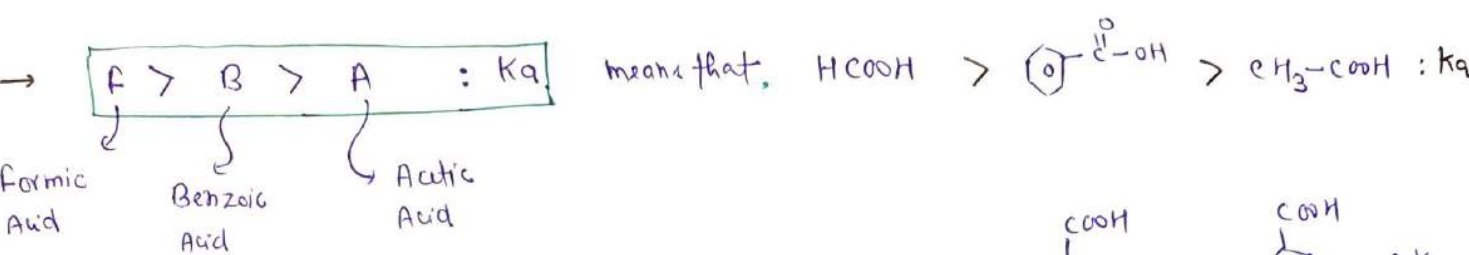 → F > B > A : Ka means that, HCOOH > C-OH > CH3-COOH : Ka
O
Formic Acid
Benzoic Acid
Acetic Acid
COOH COOH